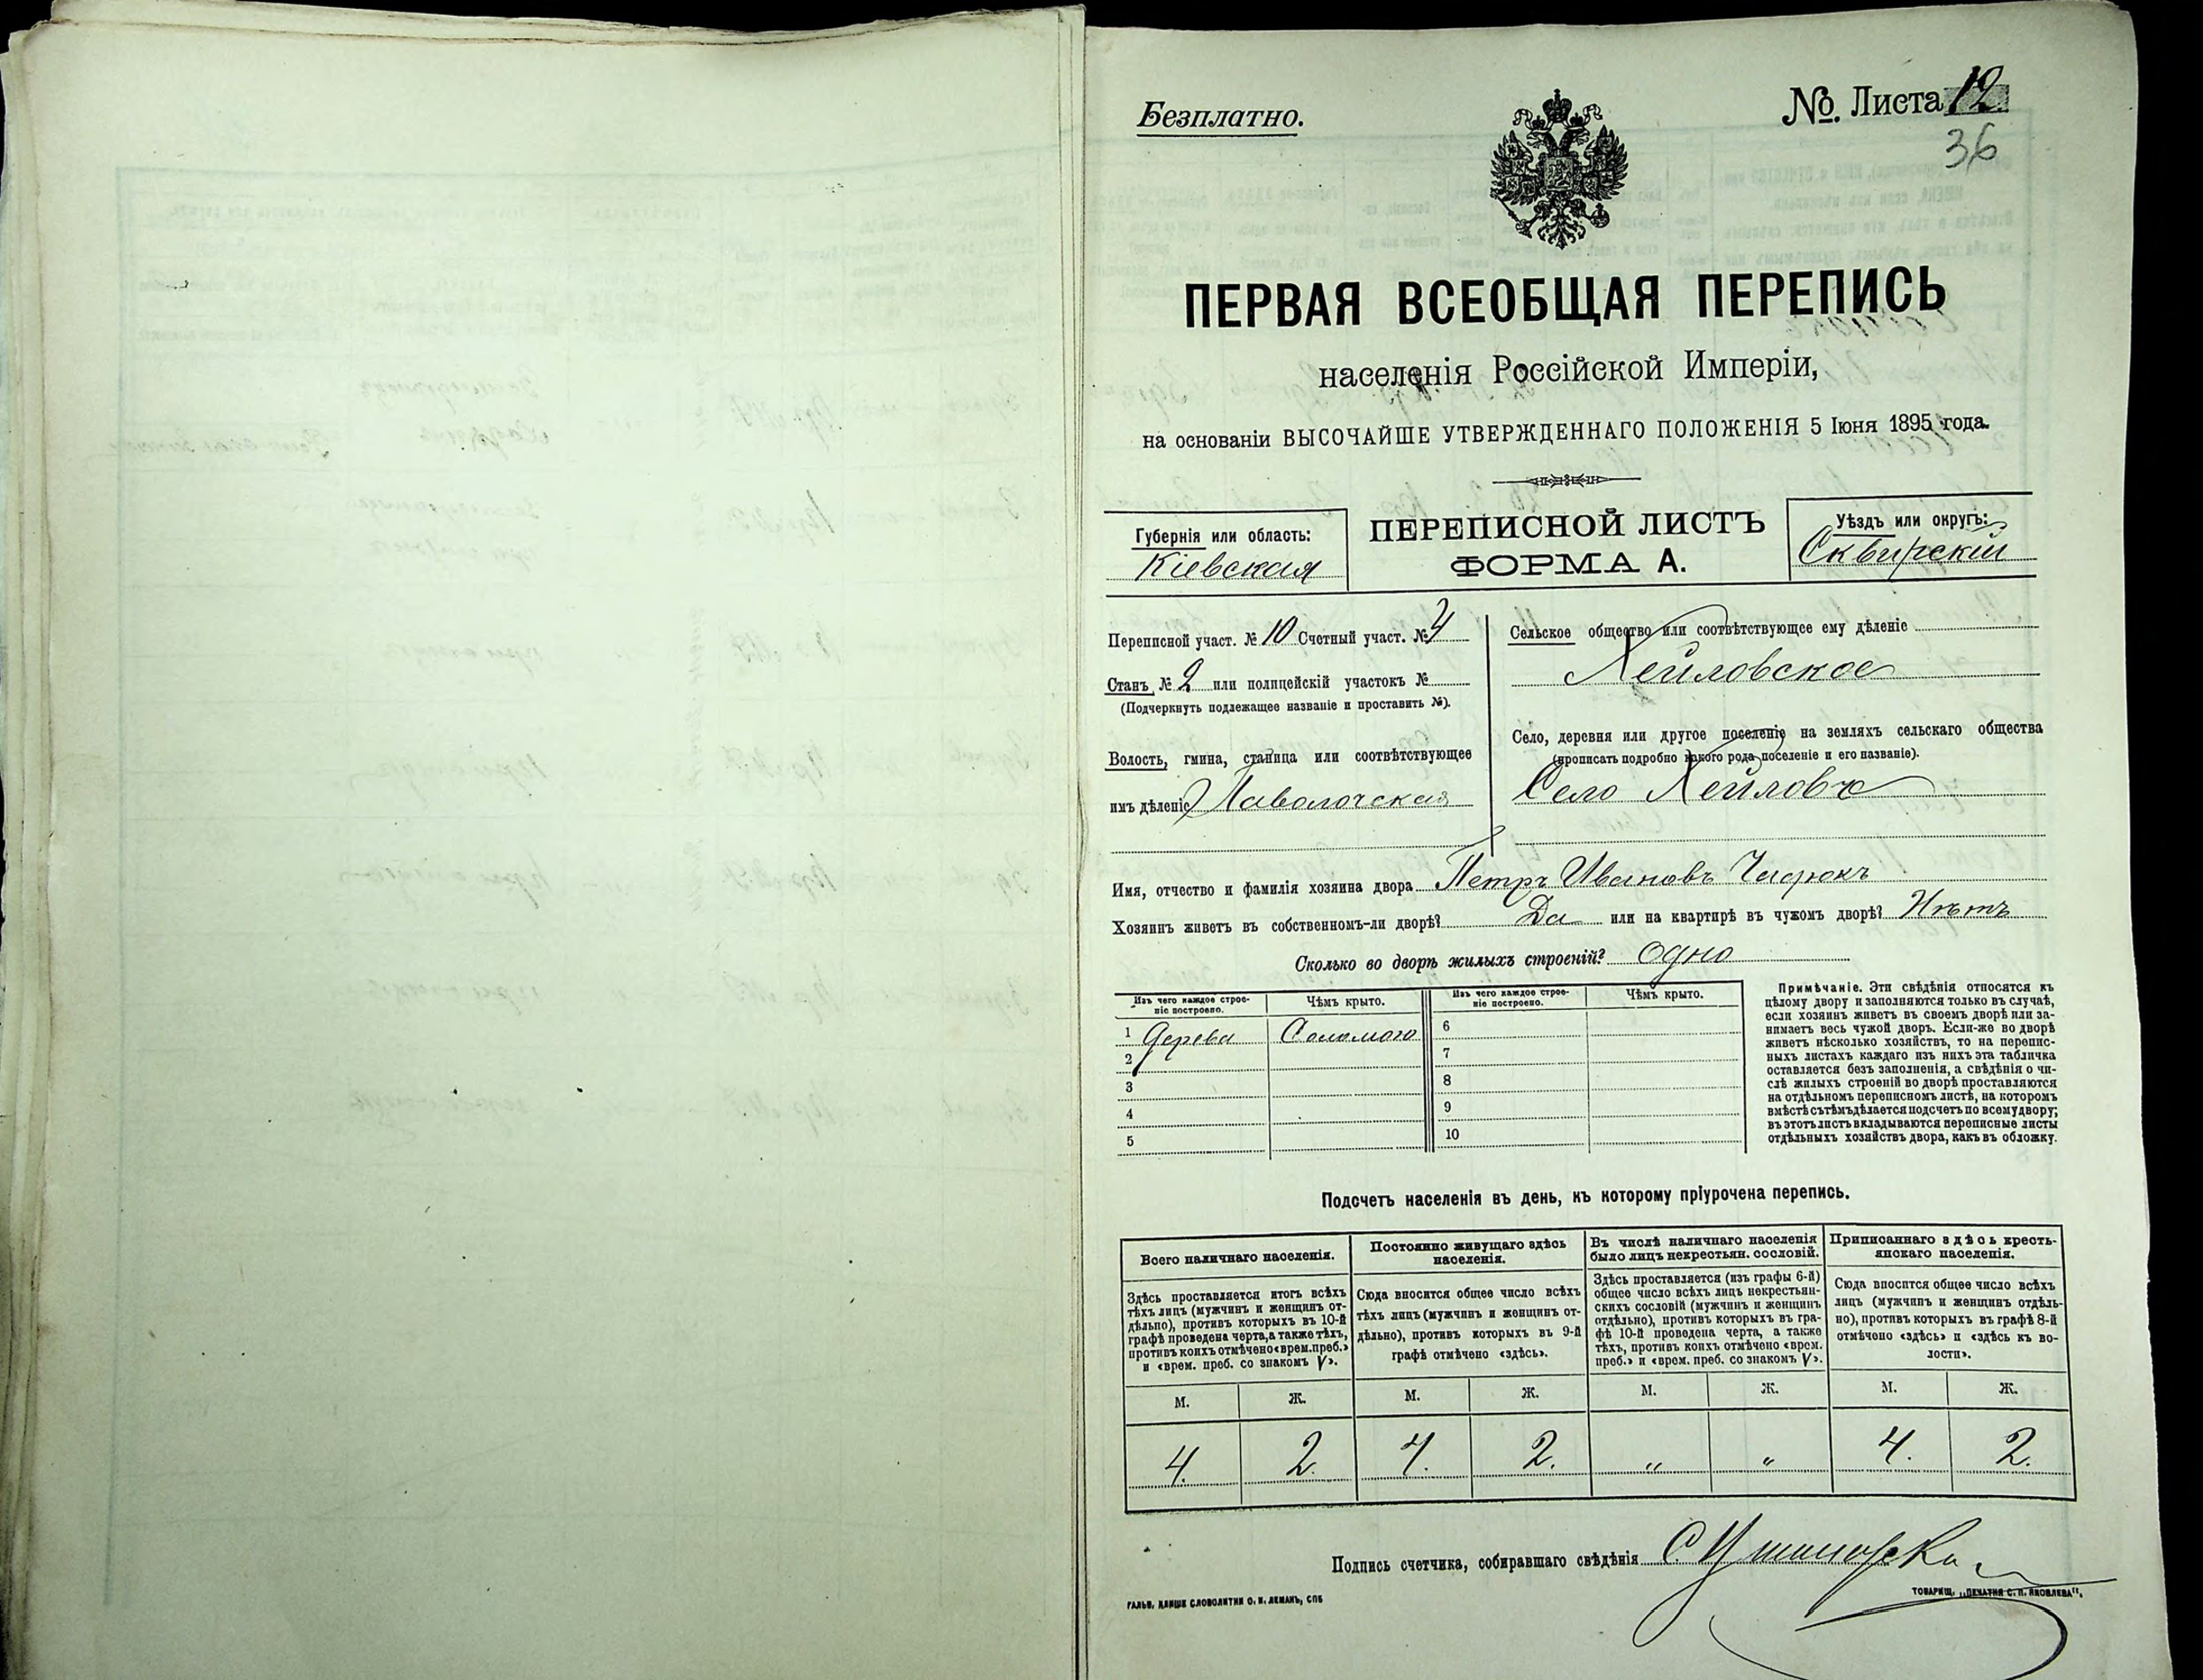 Безплатно.
№ Листа 12
36
ПЕРВАЯ ВСЕОБЩАЯ ПЕРЕПИСЬ
населенія Россійской Имперіи,
на основаніи ВЫСОЧАЙШЕ УТВЕРЖДЕННАГО ПОЛОЖЕНІЯ 5 Іюня 1895 года.
Губернія или область:
Кіевская
ПЕРЕПИСНОЙ ЛИСТЪ
ФОРМА А.
Уѣздъ или округъ:
Сквирскій
Переписной участ. № 10 Счетный участ. № 4
Станъ № 2 или полицейскій участокъ №
(Подчеркнуть подлежащее названіе и проставить №).
Волость, гмина, станица или соотвѣтствующее
имъ дѣленіе Паволочская
Сельское общество или соотвѣтствующее ему дѣленіе
Хейловское
Село, деревня или другое поселеніе на земляхъ сельскаго общества
(прописать подробно какого рода поселеніе и его названіе).
Село Хейловъ
Имя, отчество и фамилія хозяина двора Петръ Ивановъ
Хозяинъ живетъ въ собственномъ-ли дворѣ? Да или на квартирѣ въ чужомъ дворѣ? Нѣтъ
Сколько во дворѣ жилыхъ строеній? Одно
Изъ чего каждое строе-
ніе построено.
Чѣмъ крыто.
Изъ чего каждое строе-
ніе построено.
Чѣмъ крыто.
1 Дерева Соломою 6
2 7
3 8
4 9
5 10
Примѣчаніе. Эти свѣдѣнія относятся къ
цѣлому двору и заполняются только въ случаѣ,
если хозяинъ живетъ въ своемъ дворѣ или за-
нимаетъ весь чужой дворъ. Если-же во дворѣ
живетъ нѣсколько хозяйствъ, то на перепис-
ныхъ листахъ каждаго изъ нихъ эта табличка
оставляется безъ заполненія, а свѣдѣнія о чи-
слѣ жилыхъ строеній во дворѣ проставляются
на отдѣльномъ переписномъ листѣ, на которомъ
вмѣстѣ съ тѣмъ дѣлается подсчетъ по всему двору;
въ этотъ листъ вкладываются переписные листы
отдѣльныхъ хозяйствъ двора, какъ въ обложку.
Подсчетъ населенія въ день, къ которому пріурочена перепись.
Всего наличнаго населенія.
Здѣсь проставляется итогъ всѣхъ
тѣхъ лицъ (мужчинъ и женщинъ от-
дѣльно), противъ которыхъ въ 10-й
графѣ проведена черта, а также тѣхъ,
противъ коихъ отмѣчено «врем. преб.»
и «врем. преб. со знакомъ V».
Постоянно живущаго здѣсь
населенія.
Сюда вносится общее число всѣхъ
тѣхъ лицъ (мужчинъ и женщинъ от-
дѣльно), противъ которыхъ въ 9-й
графѣ отмѣчено «здѣсь».
Въ числѣ наличнаго населенія
было лицъ некрестьян. сословій.
Здѣсь проставляется (изъ графы 6-й)
общее число всѣхъ лицъ некрестьян-
скихъ сословій (мужчинъ и женщинъ
отдѣльно), противъ которыхъ въ гра-
фѣ 10-й проведена черта, а также
тѣхъ, противъ коихъ отмѣчено «врем.
преб.» и «врем. преб. со знакомъ V».
Приписаннаго здѣсь кресть-
янскаго населенія.
Сюда вносится общее число всѣхъ
лицъ (мужчинъ и женщинъ отдѣль-
но), противъ которыхъ въ графѣ 8-й
отмѣчено «здѣсь» и «здѣсь къ во-
лости».
М. Ж. М. Ж. М. Ж. М. Ж.
4. 2. 4. 2. " " 4. 2.
Подпись счетчика, собиравшаго свѣдѣнія
ГАЛЬВ. КЛИШЕ СЛОВОЛИТНИ О. И. ЛЕМАНЪ, СПБ
ТОВАРИЩ. „ПЕЧАТНЯ С. П. ЯКОВЛЕВА".